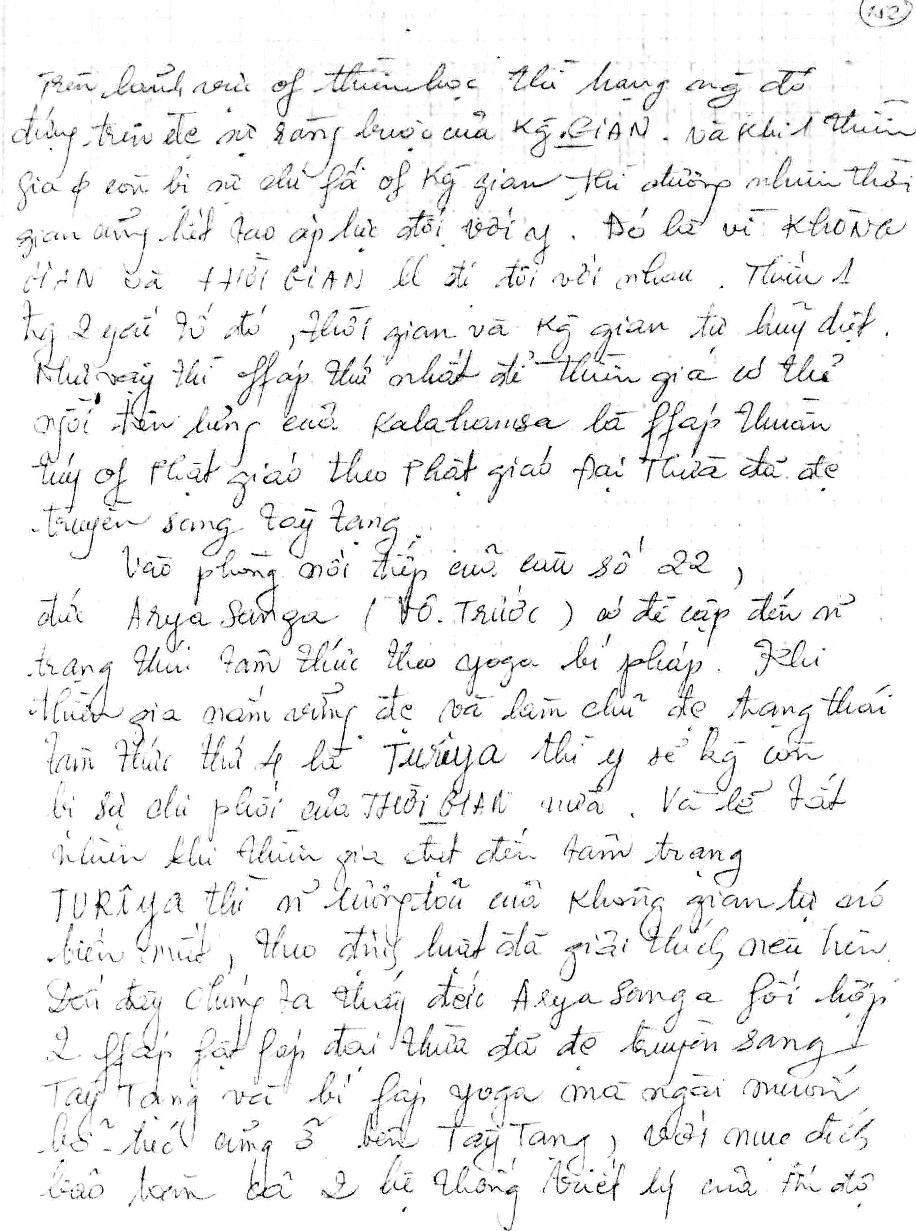 152
Trên lãnh vực of thiền học thì hạng ng đó
đứng trên đc sự ràng buộc của Kg GIAN. và khi 1 thiền
gia ɸ còn bị sự chi fối of Kg gian thì đương nhiên thời
gian cũng hết tạo áp lực đối với y. Đó là vì KHÔNG
GIAN và THỜI GIAN ll đi đôi với nhau. Thiếu 1
tg 2 yếu tố đó, thời gian và Kg gian tự huỷ diệt.
Như vậy thì ffáp thứ nhất để thiền giả có thể
ngồi trên lưng của Kalahamsa là ffáp thuần
túy of Phật giáo theo Phật giáo Đại Thừa đã đc
truyền sang Tây Tạng.
Vào phòng nối tiếp của câu số 22,
đức Arya Sanga (VÔ. TRƯỚC) có đề cập đến n~
trạng thái tâm thức theo yoga bí pháp. Khi
thiền gia nắm vững đc và làm chủ đc trạng thái
tâm thức thứ 4 là Turiya thì y sẽ kg còn
bị sự chi phối của THỜI GIAN nữa. Và lẽ tất
nhiên khi thiền gia đạt đến tâm trạng
TURIYA thì n~ tường của Không gian tự nó
biến mất, theo đúng luật đã giải thích nêu trên.
Đến đây chúng ta thấy đức Arya Sanga fối hợp
2 ffáp fật fáp đại thừa đã đc truyền sang
Tây Tạng và bí fáp yoga mà ngài muốn
bổ túc cũng ở bên Tây Tạng, với mục đích
bảo tồn cả 2 hệ thống triết lý của Ấn độ